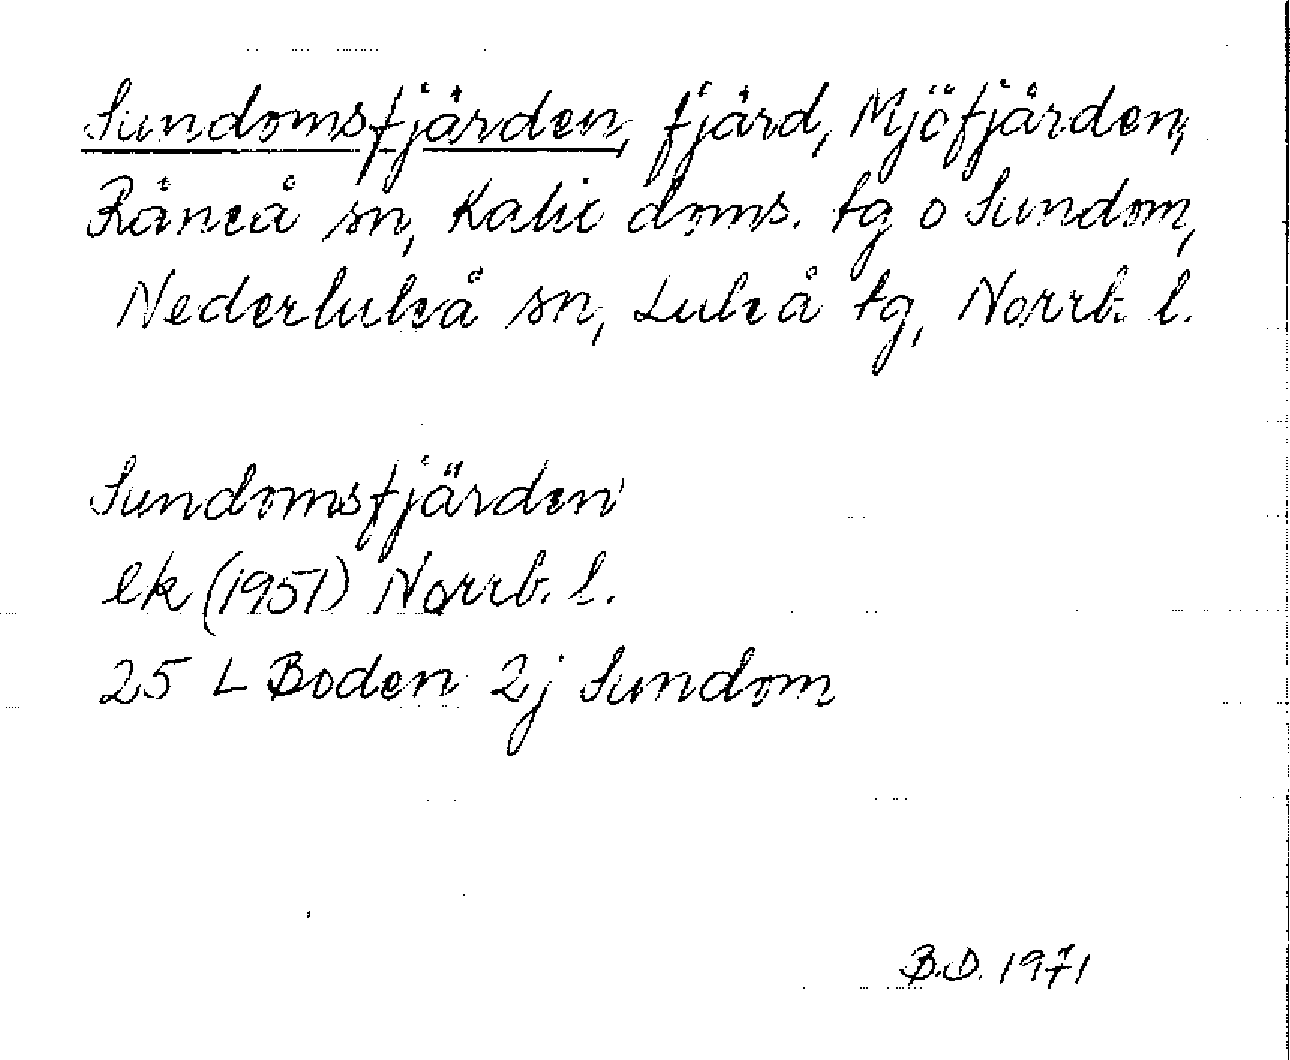 Sundomsfjärden, fjärd, Mjöfjärden,
Råneå sn, Kalix doms. tg o Sundom,
Nederluleå sn, Luleå tg, Norrb. l.
Sundomsfjärden
ek (1951) Norrb. l.
25 L Boden 2j Sundom
B.D. 1971